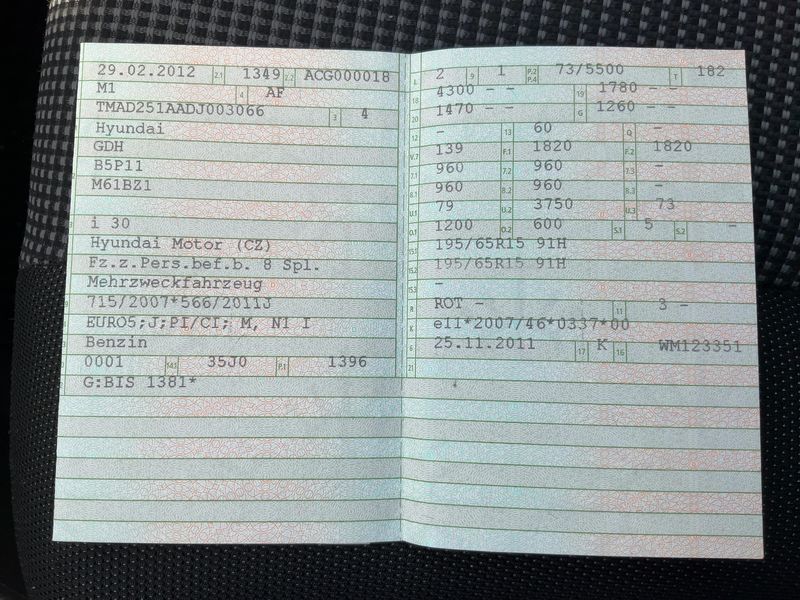 29.02.2012 2.1 1349 2.2 ACG000018
M1 4 AF
TMAD251AADJ003066 3 4
Hyundai
GDH
B5P11
M61BZ1
i 30
Hyundai Motor (CZ)
Fz.z.Pers.bef.b. 8 Spl.
Mehrzweckfahrzeug
715/2007*566/2011J
EURO5;J;PI/CI; M, N1 I
Benzin
0001 14.1 35J0 P.1 1396
G:BIS 1381*
L 2 9 1 P.2 P.4 73/5500 T 182
18 4300 - - 19 1780 - -
20 1470 - - G 1260 - -
12 - 13 60 Q -
V.7 139 F.1 1820 F.2 1820
7.1 960 7.2 960 7.3 -
8.1 960 8.2 960 8.3 -
U.1 79 U.2 3750 U.3 73
O.1 1200 O.2 600 S.1 5 S.2 -
15.1 195/65R15 91H
15.2 195/65R15 91H
15.3 -
R ROT - 11 3 -
K e11*2007/46*0337*00
6 25.11.2011 17 K 16 WM123351
21